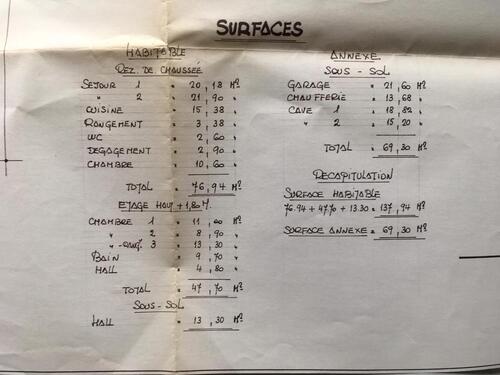 SURFACES
HABITABLE
REZ. DE. CHAUSSÉE
SEJOUR 1 = 20,18 M²
" 2 " 21,90 "
CUISINE " 15,38 "
RANGEMENT " 3,38 "
WC " 2,60 "
DEGAGEMENT " 2,90 "
CHAMBRE " 10,60 "
TOTAL = 76,94 M²
ETAGE HAUT + 1,80 M.
CHAMBRE 1 = 11,00 M²
" 2 " 8,90 "
" 3 " 13,30 "
BAIN " 9,70 "
HALL " 4,80 "
TOTAL = 47,70 M²
SOUS-SOL
HALL = 13,30 M²
ANNEXE
SOUS - SOL
GARAGE = 21,60 M²
CHAUFFERIE " 13,68 "
CAVE 1 " 18,82 "
" 2 " 15,20 "
TOTAL = 69,30 M²
RECAPITULATION
SURFACE HABITABLE
76.94 + 47.70 + 13.30 = 137,94 M²
SURFACE ANNEXE = 69,30 M²